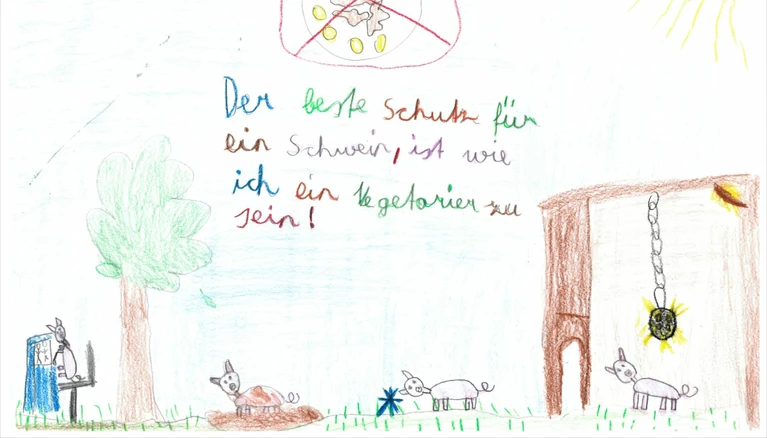 Der beste Schutz für
ein Schwein, ist wie
ich ein Vegetarier zu
sein!